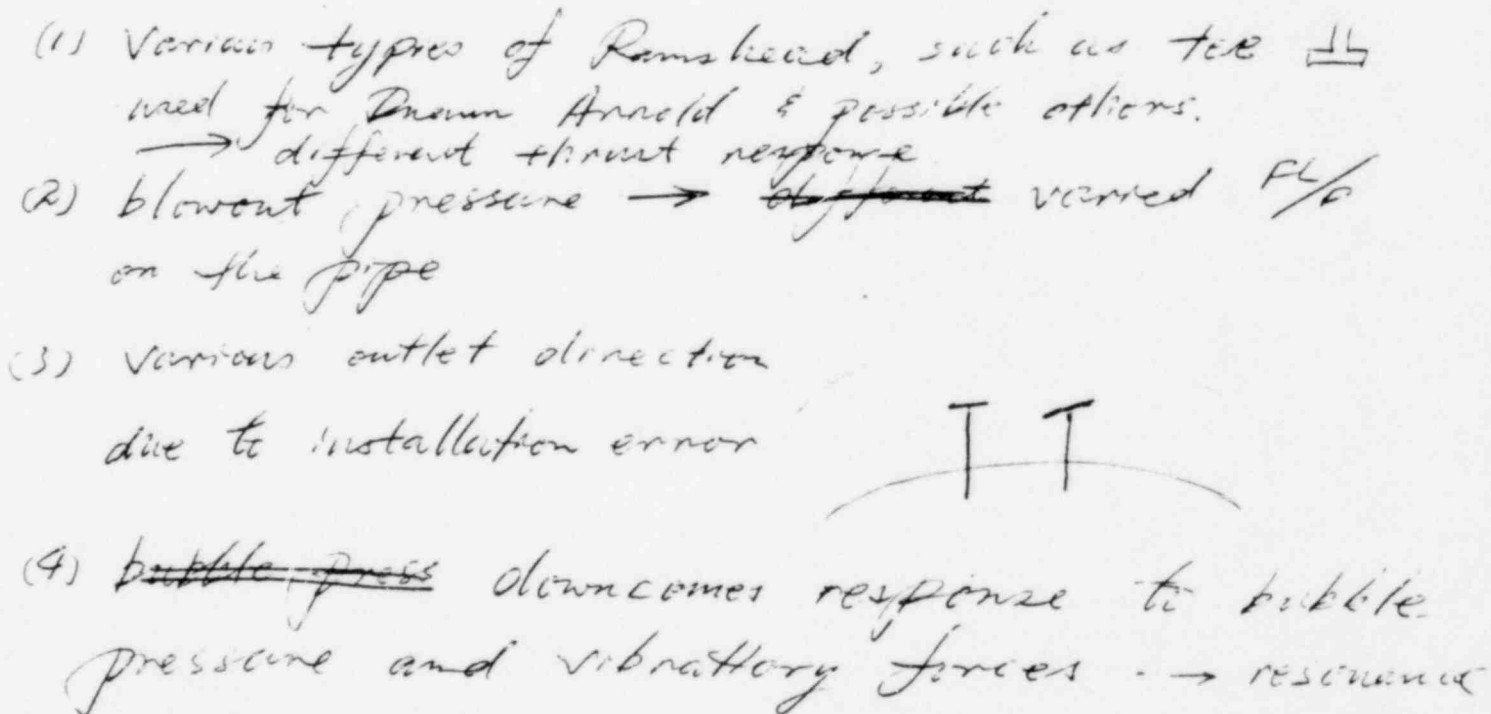 (1) Various types of Ramshead, such as tee
used for Duane Arnold & possible others.
→ different thrust response
(2) blowout pressure → varied FL/c
on the pipe
(3) various outlet direction
due to installation error
(4) bubble press downcomes response to bubble
pressure and vibrattory forces → resonance